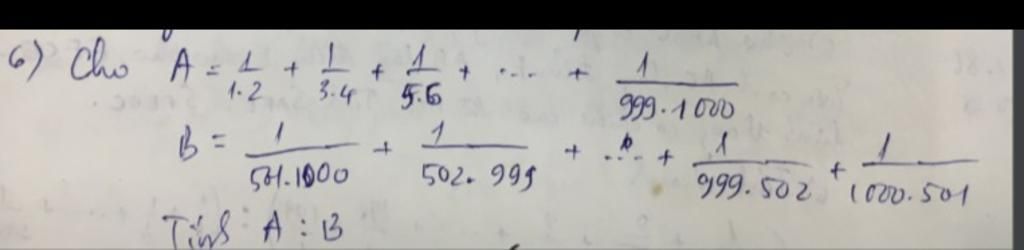 6) Cho A = 1/1.2 + 1/3.4 + 1/5.6 + .... + 1/999.1000
B = 1/501.1000 + 1/502.999 + .... + 1/999.502 + 1/1000.501
Tính A : B